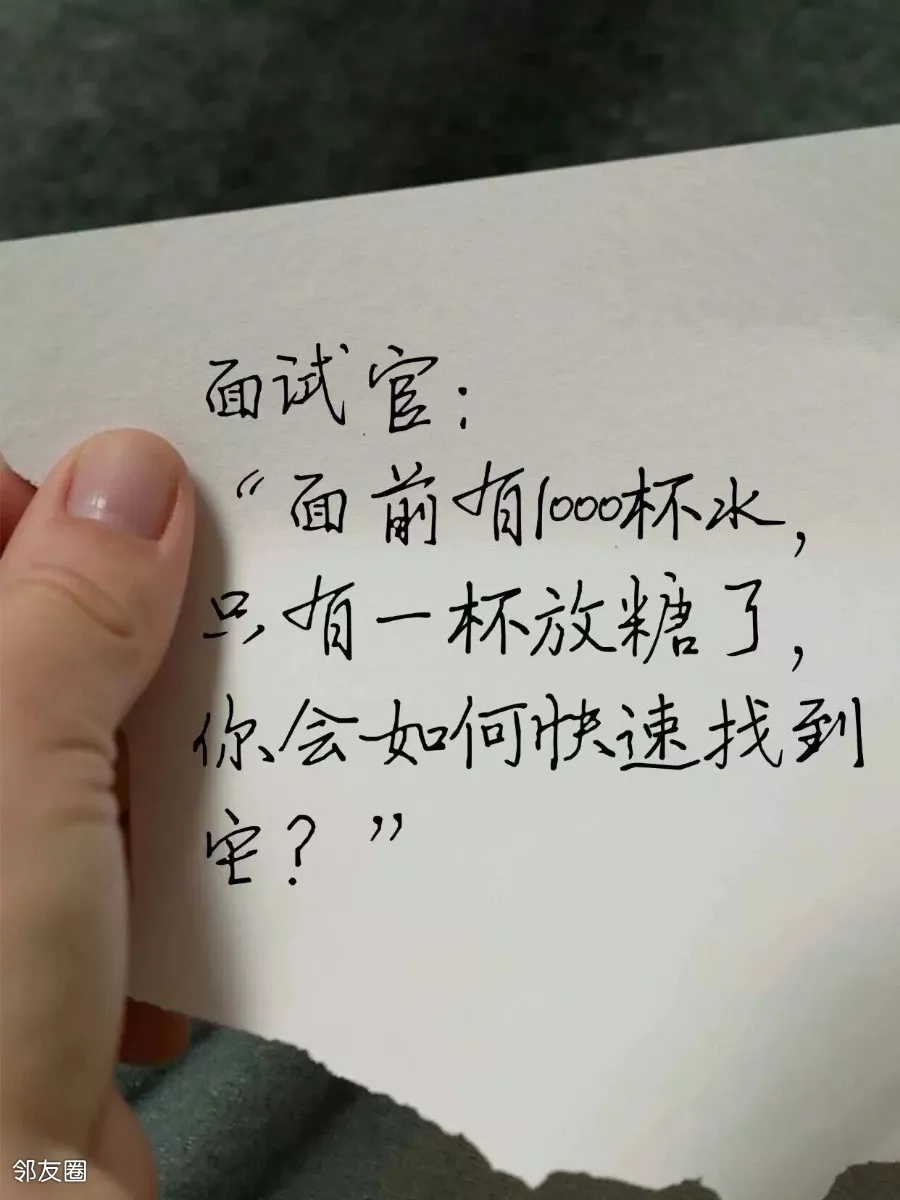 面试官：
“面前有1000杯水，
只有一杯放糖了，
你会如何快速找到
它？”
邻友圈